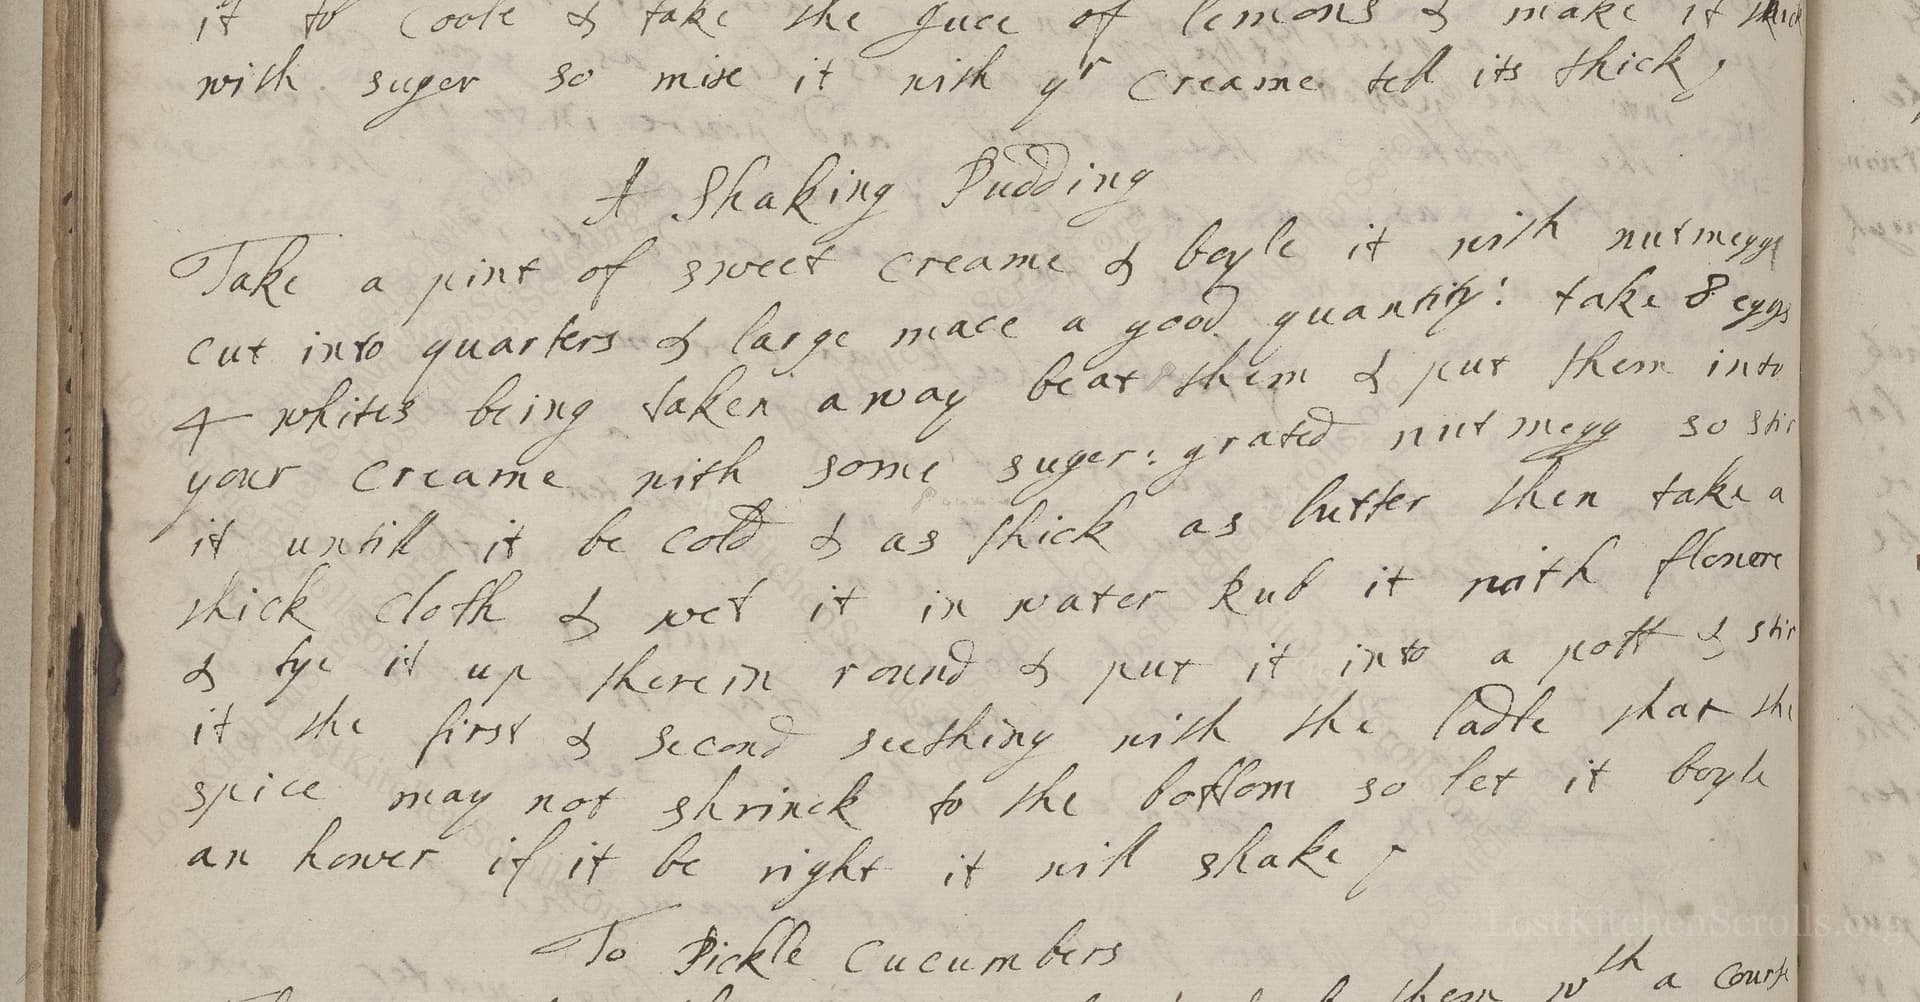 it to coole & take the Juce of lemons & make it thick
with suger so mixe it with yr Creame tell its thick
A Shaking Pudding
Take a pint of sweet creame & boyle it with nutmeggs
cut into quarters & large mace a good quantity: take 8 eggs
4 whites being taken away beat them & put them into
your creame with some suger: grated nutmegg so stir
it untill it be cold & as thick as butter then take a
thick cloth & wet it in water Rub it with flowere
& tye it up therein round & put it into a pott & stir
it the first & second seething with the ladle that the
spice may not shrinck to the bottom so let it boyle
an hower if it be right it will shake
To Pickle Cucumbers
them wth a course
LostKitchenScrolls.org